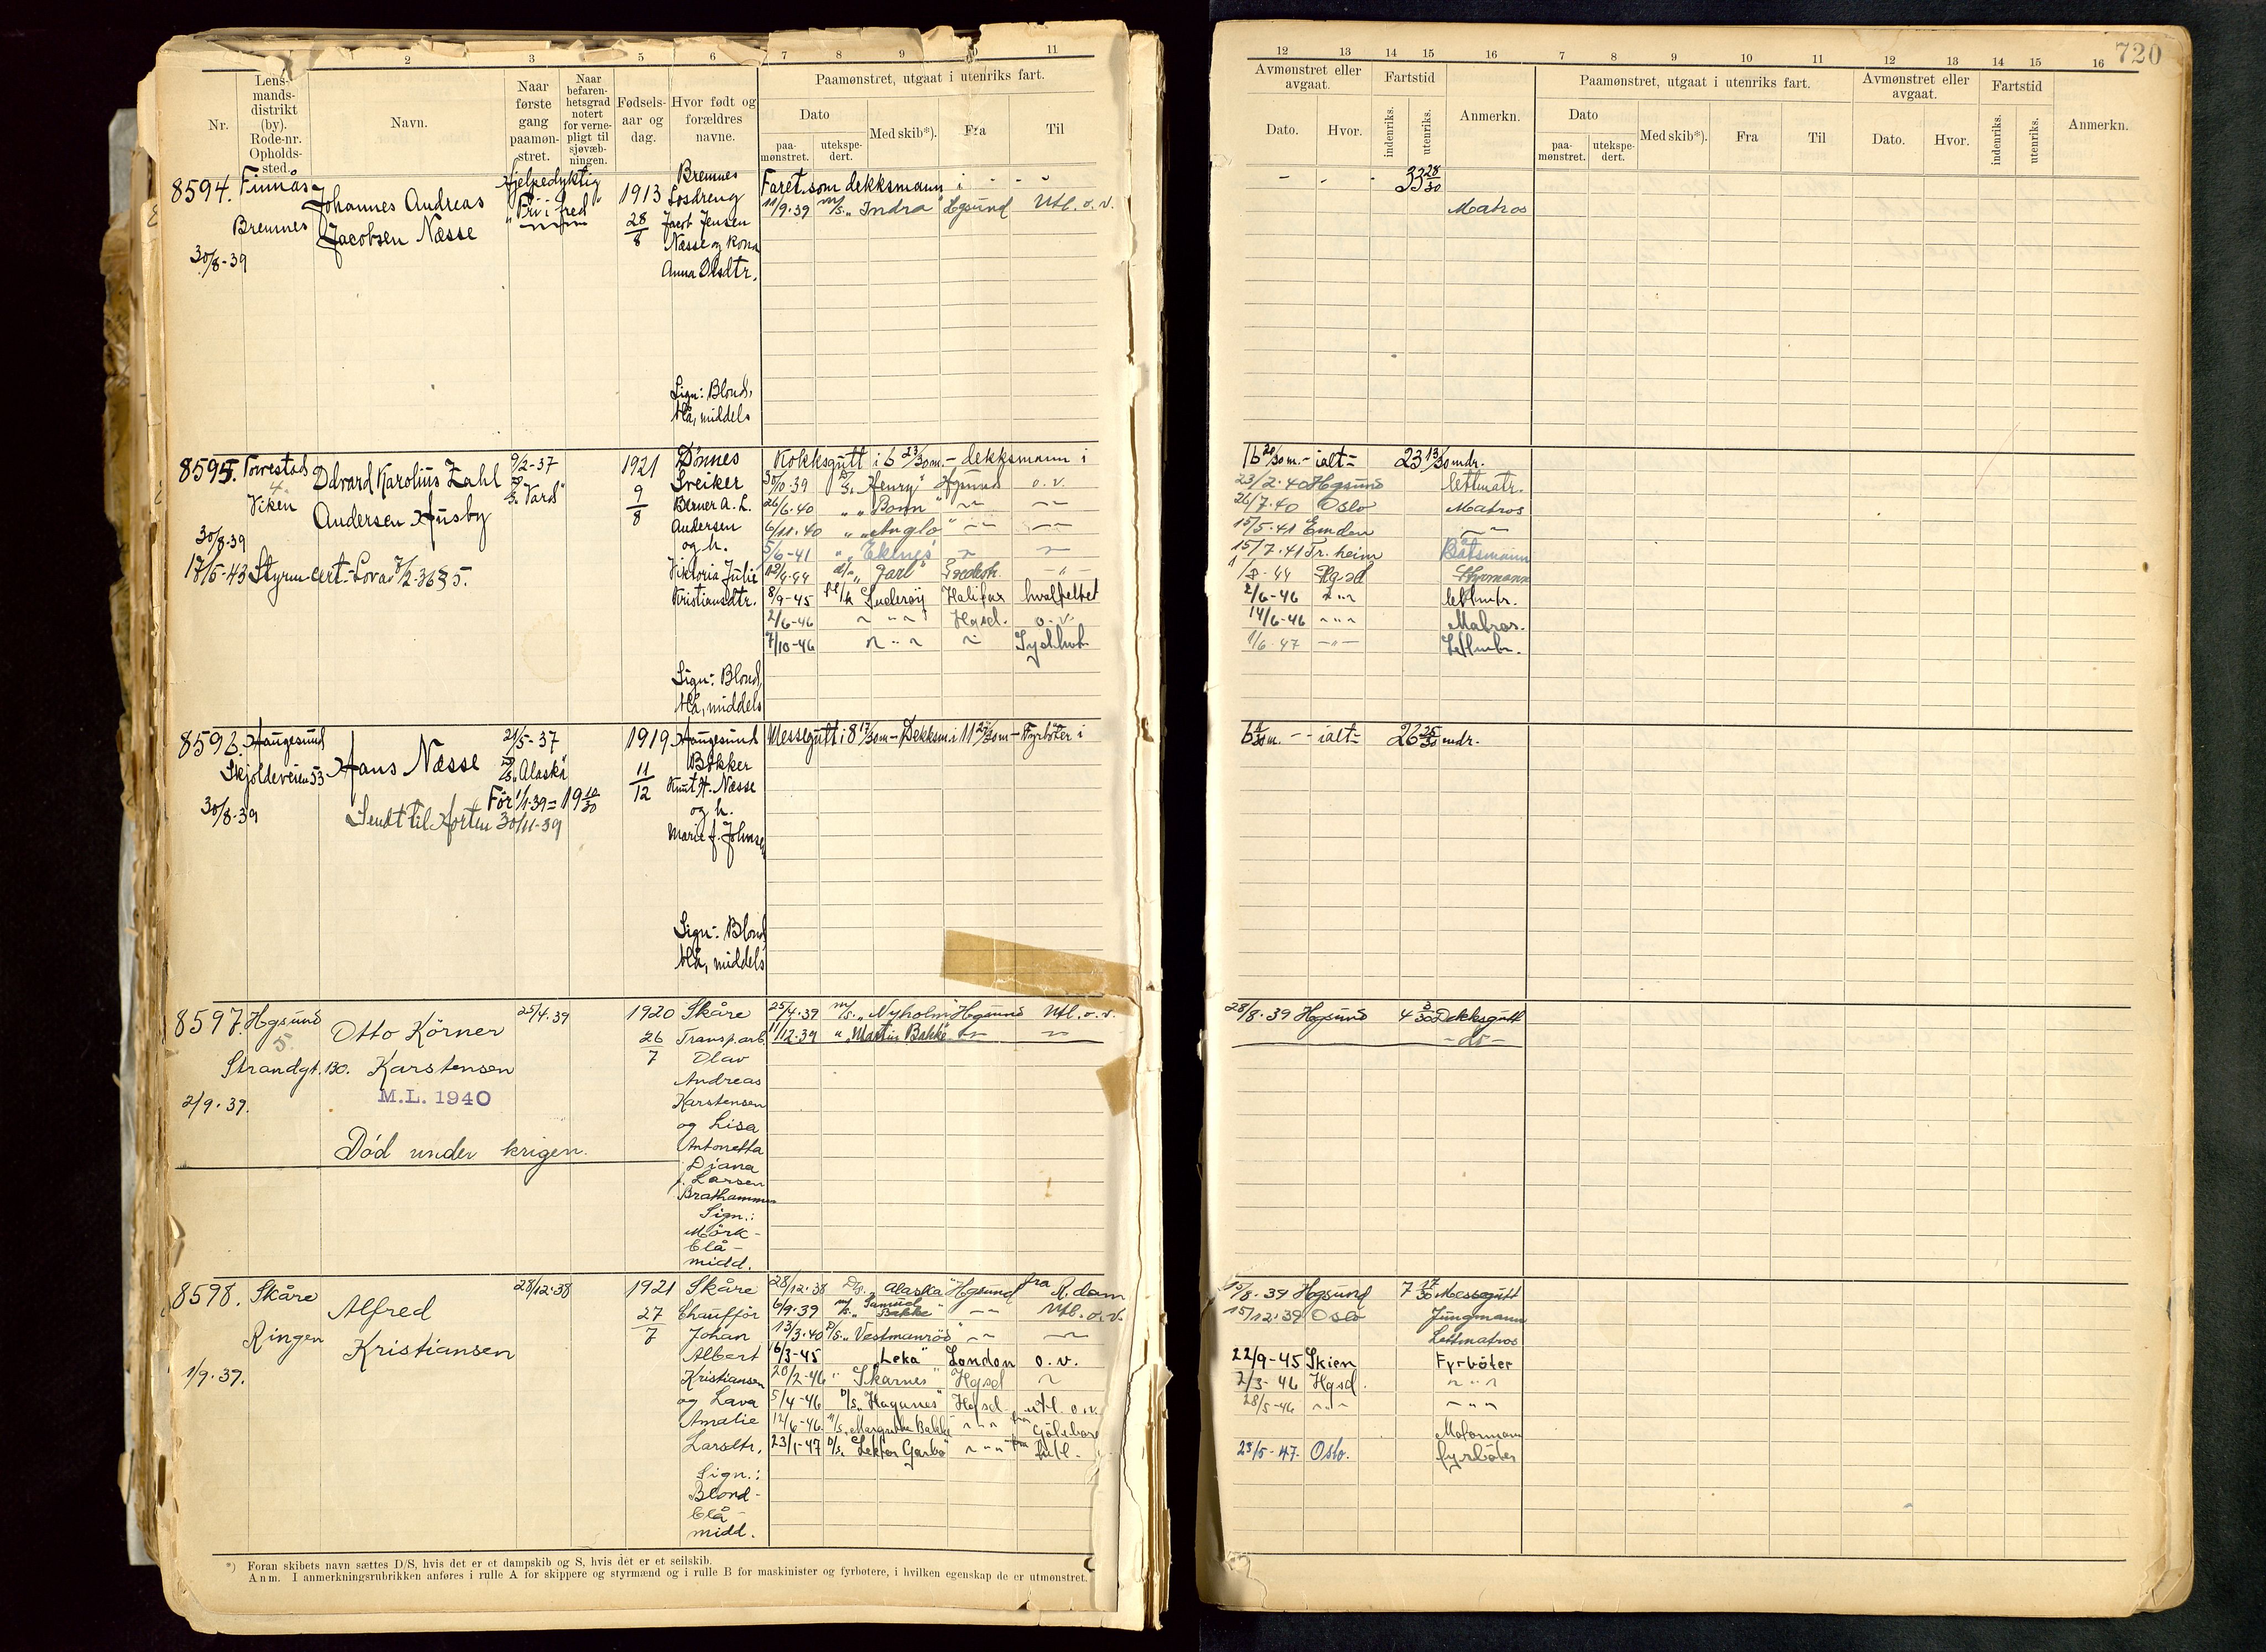 720
2 3 5 6 7 8 9 10 11
12 13 14 15 16 7 8 9 10 11 12 13 14 15 16
Nr.
Lens-
mands-
distrikt
(by).
Rode-nr.
Opholds-
sted.
Navn.
Naar
første
gang
paamøn-
stret.
Naar
befaren-
hetsgrad
notert
for verne-
pligt til
sjøvæb-
ningen.
Fødsels-
aar og
dag.
Hvor født og
forældres
navne.
Paamønstret, utgaat i utenriks fart.
Dato
paa-
mønstret.
utekspe-
dert.
Med skib*).
Fra
Til
Avmønstret eller
avgaat.
Dato.
Hvor.
Fartstid
indenriks.
utenriks.
Anmerkn.
Paamønstret, utgaat i utenriks fart.
Dato
paa-
mønstret.
utekspe-
dert.
Med skib*).
Fra
Til
Avmønstret eller
avgaat.
Dato.
Hvor.
Fartstid
indenriks.
utenriks.
Anmerkn.
8594. Finnås
Bremnes
30/8-39
Johannes Andreas
Jacobsen Næsse
Hjelpedyktig
"Fri i fred"
1913
28/8
Bremnes
Losdreng
Jacob Jensen
Næsse og kona
Anna Olsdtr.
Sign: Blond,
blå, middels
Faret som dekksmann i - - - - - 33 28/30
11/9.39 m/s. "Indra" Hgsund Utl. o. v. Matros
8595. Torvestad
4.
Viken
30/8-39
Edvard Karolius Zahl
Andersen Husby
17/5-43 Styrm cert.
9/2-37
D/S. "Vard"
1921
9/8
Dønnes
Sveiker
Berner A. L.
Andersen
og h.
Viktoria Julie
Kristiansdtr.
Sign: Blond,
blå, middels
Kokksgutt i 6 23/30 m. - dekksmann i 16 20/30 m. - ialt = 23 13/30 mdr.
30/10.39 D/s. "Henry" Hgsund o. v. 23/2.40 Hgsund lettmatr.
26/6.40 " "Bonn" 26/7.40 Oslo Matros
6/11.40 " "Anglo" 15/5.41 Emden
5/6-41 " "Eknes" 15/7.41 Tr.heim Båtsmann
"Jarl" Fredrikst. Hgsd Styrmann
8/9-45 fl/k Suderøy Halifax hvalfeltet 2/6-46 lettmtr.
2/6-46 Hgsd. o. v. 14/6-46 Matros.
7/10-46 Sydhvh. 1/6-47 Lettmtr.
8596. Haugesund
Skjoldeveien 53
30/8-39
Hans Næsse
21/5-37
D/S. "Alaska"
Før 1/1-39 = 19 10/30
Sendt til Horten 30/11-39
1919
11/12
Haugesund
Bøkker
Knut H. Næsse
og h.
Marie f. Johnsen
Sign: Blond,
blå, middels
Messegutt i 8 17/30 m - Dekksm. i 11 24/30 m - Fyrbøter i 6 m. - - ialt = 26 25/30 mdr.
8597. Hgsund
5.
Strandgt. 130.
2/9.39.
Otto Körner
Karstensen
M.L. 1940
Död under krigen.
25/4.39
1920
26/7
Skåre
Transp.arb.
Olav
Andreas
Karstensen
og Lisa
Antonetta
Diana
f. Larsen
Brathammer
Sign.:
Mörk -
blå -
midd.
25/4.39 m/s. "Nyholm" Hgsund Utl. o. v. 28/8.39 Hgsund 4 3/30 Dekksgutt
11/12.39 " "Martin Bakke" - do -
8598. Skåre
Ringen
1/9.39.
Alfred
Kristiansen
28/12.38
1921
27/7
Skåre
Chauffør
Johan
Albert
Kristiansen
og Lava
Amalie
Larsdtr.
Sign.:
Blond -
blå -
midd.
28/12.38 D/s. "Alaska" Hgsund fra R.dam 15/8.39 Hgsund 7 17/30 Messegutt
6/9.39 m/s. "Samuel Bakke" Utl. o. v. 15/12.39 Oslo Jungmann
13/3.40 D/s. "Vestmanröd" Lettmatros
6/3-45 "Leka" London o. v. 22/9-45 Skien Fyrbøter
20/2-46 " "Skarnes" Hgsd 2/3-46 Hgsd.
5/4-46 D/s. "Hagnes" Hgsd utl. o. v. 28/5-46
12/6-46 M/s. "Margrethe Bakke" fra Göteborg Motormann
23/1-47 D/s. "Lektor Garbo" fra utl. 23/5-47. Oslo. fyrbøter
*) Foran skibets navn sættes D/S, hvis det er et dampskib og S, hvis det er et seilskib.
Anm. I anmerkningsrubrikken anføres i rulle A for skippere og styrmænd og i rulle B for maskinister og fyrbøtere, i hvilken egenskap de er utmønstret.